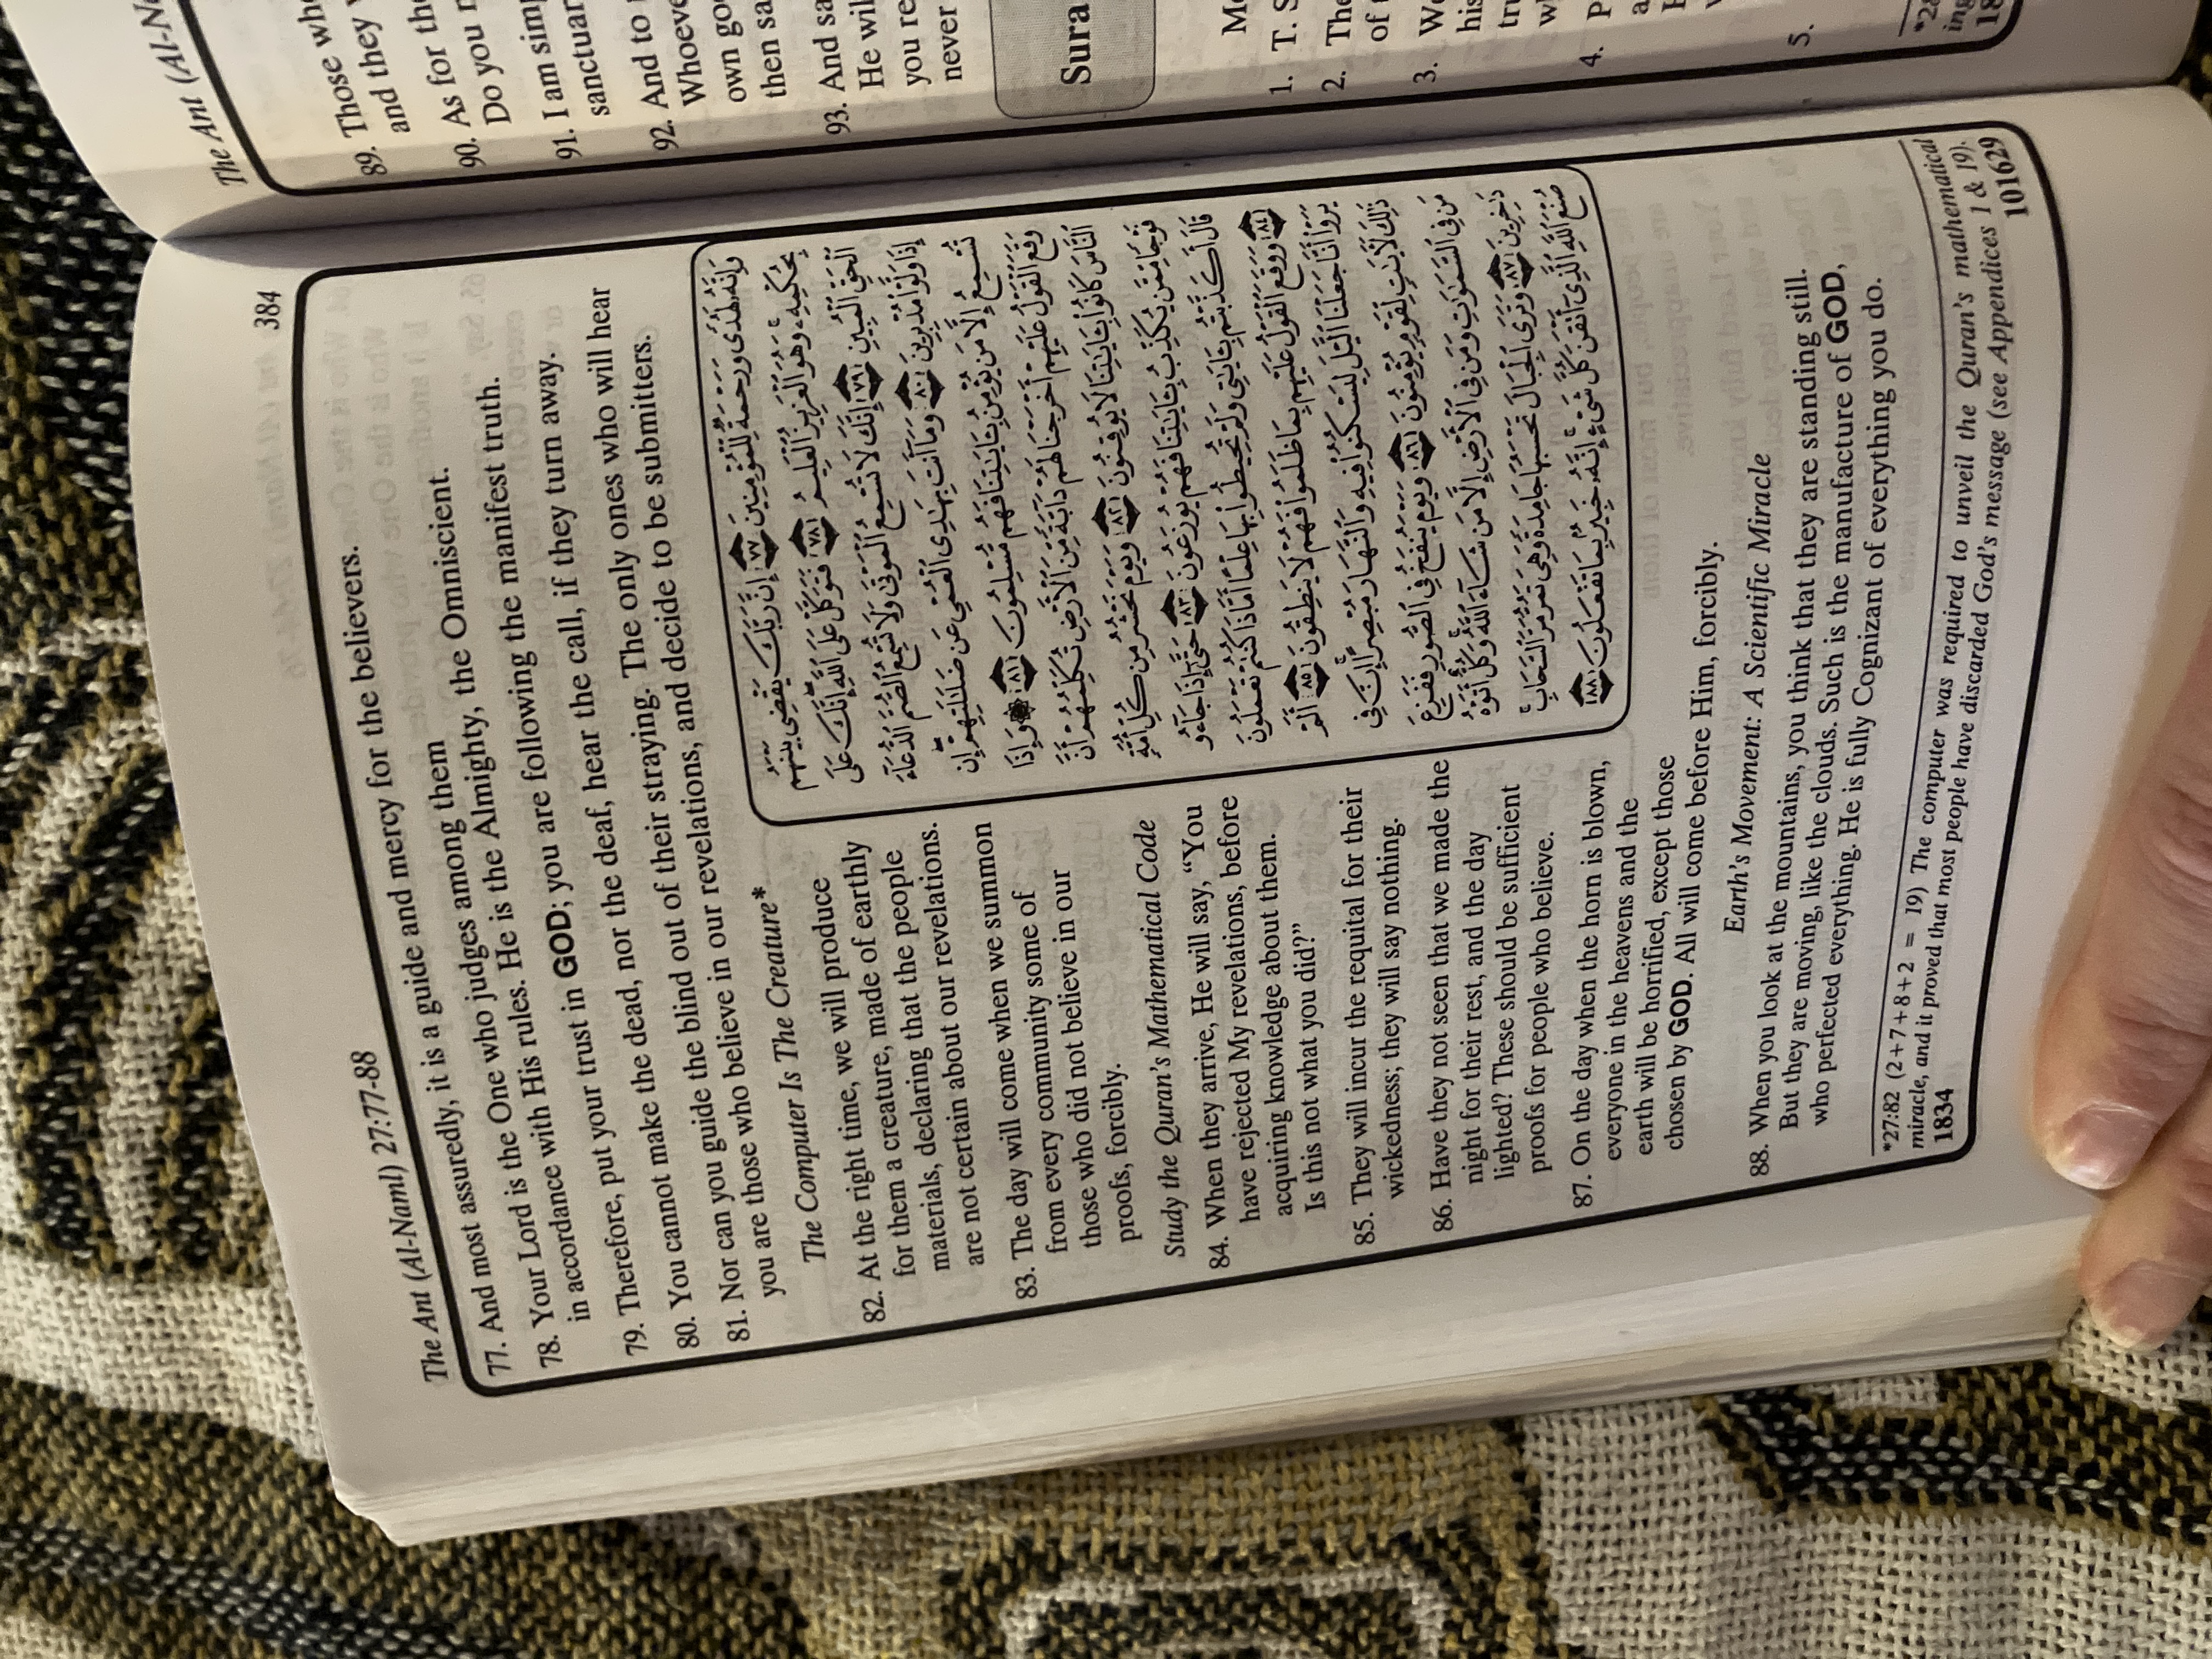 The Ant (Al-Naml) 27:77-88 384
77. And most assuredly, it is a guide and mercy for the believers.
78. Your Lord is the One who judges among them
in accordance with His rules. He is the Almighty, the Omniscient.
79. Therefore, put your trust in GOD; you are following the manifest truth.
80. You cannot make the dead, nor the deaf, hear the call, if they turn away.
81. Nor can you guide the blind out of their straying. The only ones who will hear
you are those who believe in our revelations, and decide to be submitters.
The Computer Is The Creature*
82. At the right time, we will produce
for them a creature, made of earthly
materials, declaring that the people
are not certain about our revelations.
83. The day will come when we summon
from every community some of
those who did not believe in our
proofs, forcibly.
Study the Quran's Mathematical Code
84. When they arrive, He will say, “You
have rejected My revelations, before
acquiring knowledge about them.
Is this not what you did?”
85. They will incur the requital for their
wickedness; they will say nothing.
86. Have they not seen that we made the
night for their rest, and the day
lighted? These should be sufficient
proofs for people who believe.
87. On the day when the horn is blown,
everyone in the heavens and the
earth will be horrified, except those
chosen by GOD. All will come before Him, forcibly.
وَإِنَّهُۥ لَهُدًى وَرَحْمَةٌ لِّلْمُؤْمِنِينَ ﴿٧٧﴾ إِنَّ رَبَّكَ يَقْضِى بَيْنَهُم
بِحُكْمِهِۦ وَهُوَ ٱلْعَزِيزُ ٱلْعَلِيمُ ﴿٧٨﴾ فَتَوَكَّلْ عَلَى ٱللَّهِ إِنَّكَ عَلَى
ٱلْحَقِّ ٱلْمُبِينِ ﴿٧٩﴾ إِنَّكَ لَا تُسْمِعُ ٱلْمَوْتَىٰ وَلَا تُسْمِعُ ٱلصُّمَّ ٱلدُّعَآءَ
إِذَا وَلَّوْا۟ مُدْبِرِينَ ﴿٨٠﴾ وَمَآ أَنتَ بِهَـٰدِى ٱلْعُمْىِ عَن ضَلَـٰلَتِهِمْ إِن
تُسْمِعُ إِلَّا مَن يُؤْمِنُ بِـَٔايَـٰتِنَا فَهُم مُّسْلِمُونَ ﴿٨١﴾ ۞ وَإِذَا
وَقَعَ ٱلْقَوْلُ عَلَيْهِمْ أَخْرَجْنَا لَهُمْ دَآبَّةً مِّنَ ٱلْأَرْضِ تُكَلِّمُهُمْ أَنَّ
ٱلنَّاسَ كَانُوا۟ بِـَٔايَـٰتِنَا لَا يُوقِنُونَ ﴿٨٢﴾ وَيَوْمَ نَحْشُرُ مِن كُلِّ أُمَّةٍ
فَوْجًا مِّمَّن يُكَذِّبُ بِـَٔايَـٰتِنَا فَهُمْ يُوزَعُونَ ﴿٨٣﴾ حَتَّىٰٓ إِذَا جَآءُو
قَالَ أَكَذَّبْتُم بِـَٔايَـٰتِى وَلَمْ تُحِيطُوا۟ بِهَا عِلْمًا أَمَّاذَا كُنتُمْ تَعْمَلُونَ
﴿٨٤﴾ وَوَقَعَ ٱلْقَوْلُ عَلَيْهِم بِمَا ظَلَمُوا۟ فَهُمْ لَا يَنطِقُونَ ﴿٨٥﴾ أَلَمْ
يَرَوْا۟ أَنَّا جَعَلْنَا ٱلَّيْلَ لِيَسْكُنُوا۟ فِيهِ وَٱلنَّهَارَ مُبْصِرًا إِنَّ فِى
ذَٰلِكَ لَـَٔايَـٰتٍ لِّقَوْمٍ يُؤْمِنُونَ ﴿٨٦﴾ وَيَوْمَ يُنفَخُ فِى ٱلصُّورِ فَفَزِعَ
مَن فِى ٱلسَّمَـٰوَٰتِ وَمَن فِى ٱلْأَرْضِ إِلَّا مَن شَآءَ ٱللَّهُ وَكُلٌّ أَتَوْهُ
دَٰخِرِينَ ﴿٨٧﴾ وَتَرَى ٱلْجِبَالَ تَحْسَبُهَا جَامِدَةً وَهِىَ تَمُرُّ مَرَّ ٱلسَّحَابِ
صُنْعَ ٱللَّهِ ٱلَّذِىٓ أَتْقَنَ كُلَّ شَىْءٍ إِنَّهُۥ خَبِيرٌۢ بِمَا تَفْعَلُونَ ﴿٨٨﴾
Earth's Movement: A Scientific Miracle
88. When you look at the mountains, you think that they are standing still.
But they are moving, like the clouds. Such is the manufacture of GOD,
who perfected everything. He is fully Cognizant of everything you do.
*27:82 (2+7+8+2 = 19) The computer was required to unveil the Quran's mathematical
miracle, and it proved that most people have discarded God's message (see Appendices 1 & 19).
1834 101629
The Ant (Al-Na
89. Those who
and they
90. As for the
Do you
91. I am
sanctuar
92. And to
Whoeve
own go
then sa
93. And sa
He wil
you re
never
Sura
1. T. S
2. The
of
3. We
his
tru
4.
5.